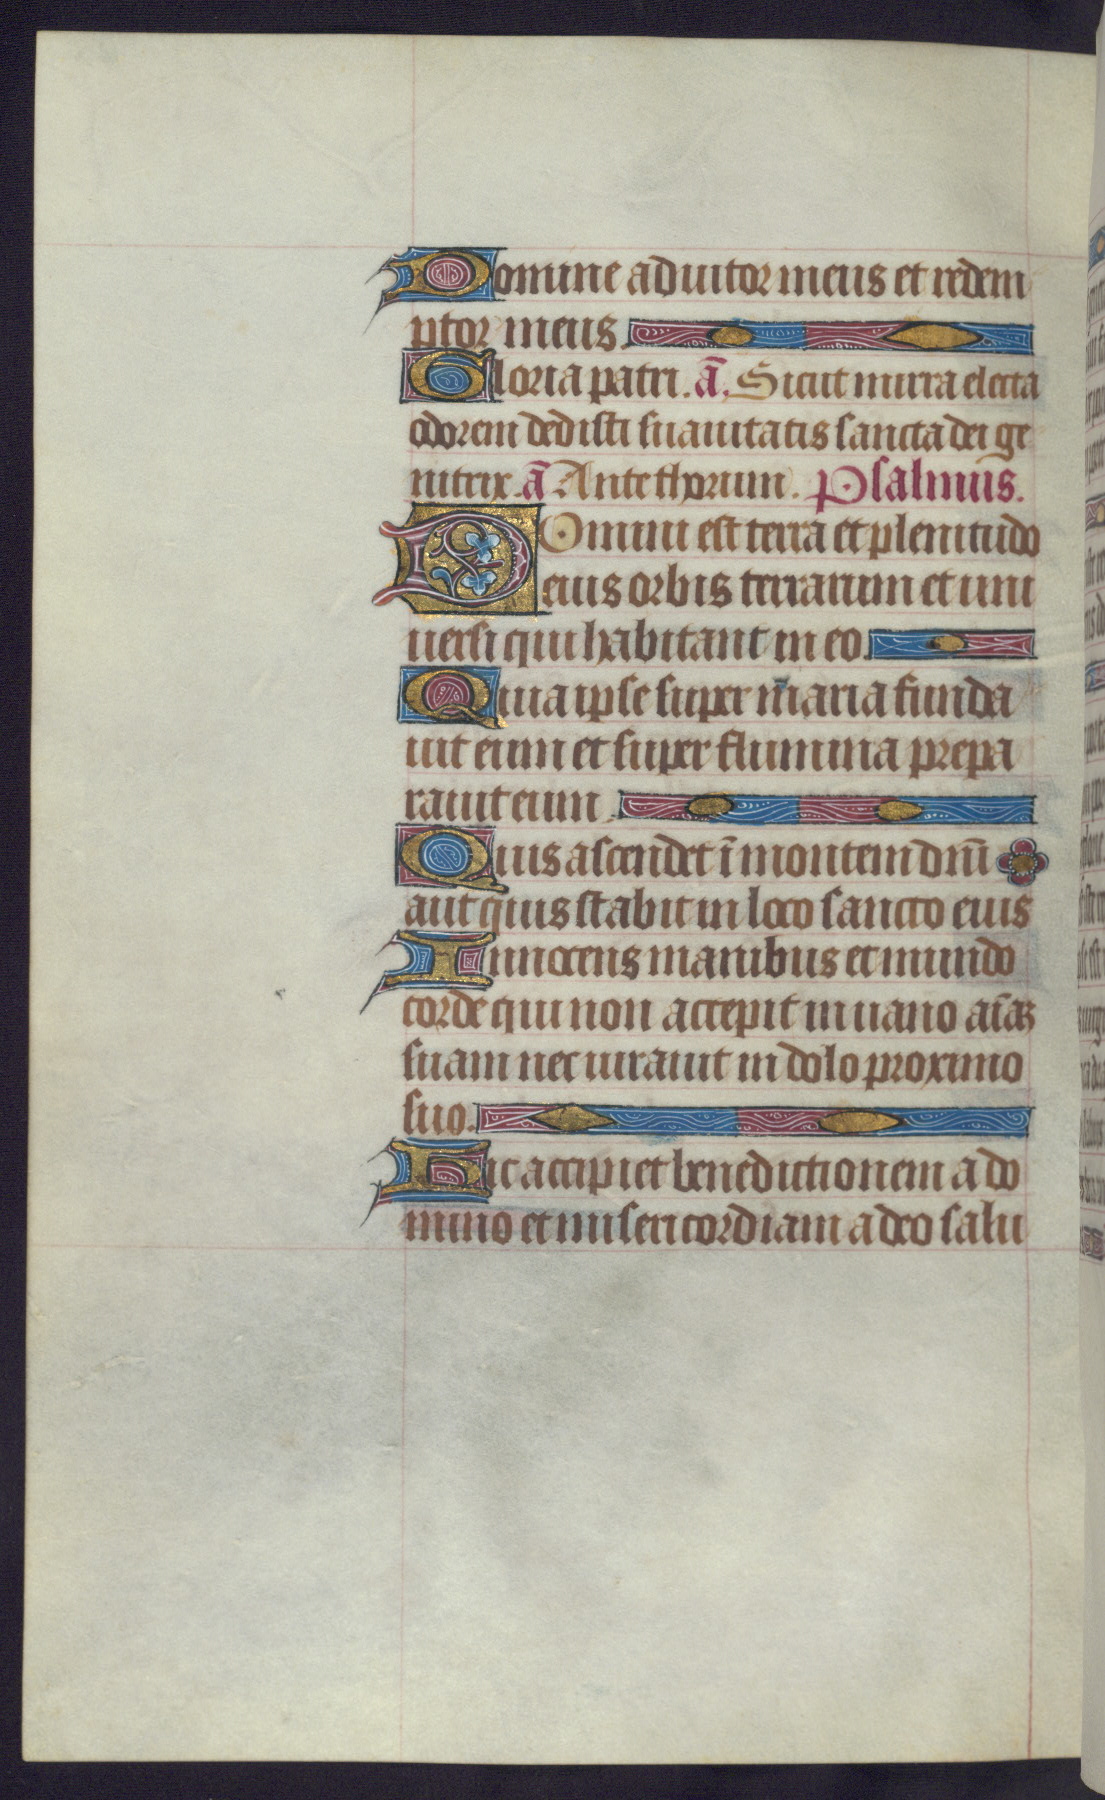 Domine adiutor meus et redem
ptor meus.
Gloria patri. ā. Sicut mirra electa
odorem dedisti suauitatis sancta dei ge
nitrix. ā Ante thorum. Psalmus.
DOmini est terra et plenitudo
eius orbis terrarum et uni
uersi qui habitant in eo.
Quia ipse super maria funda
uit eum et super flumina prepa
rauit eum.
Quis ascendet ī montem dn̄i
aut quis stabit in loco sancto eius
Innocens manibus et mundo
corde qui non accepit in uano aīaꝫ
suam nec iurauit in dolo proximo
suo.
Hic accipiet benedictionem a do
mino et misericordiam a deo salu